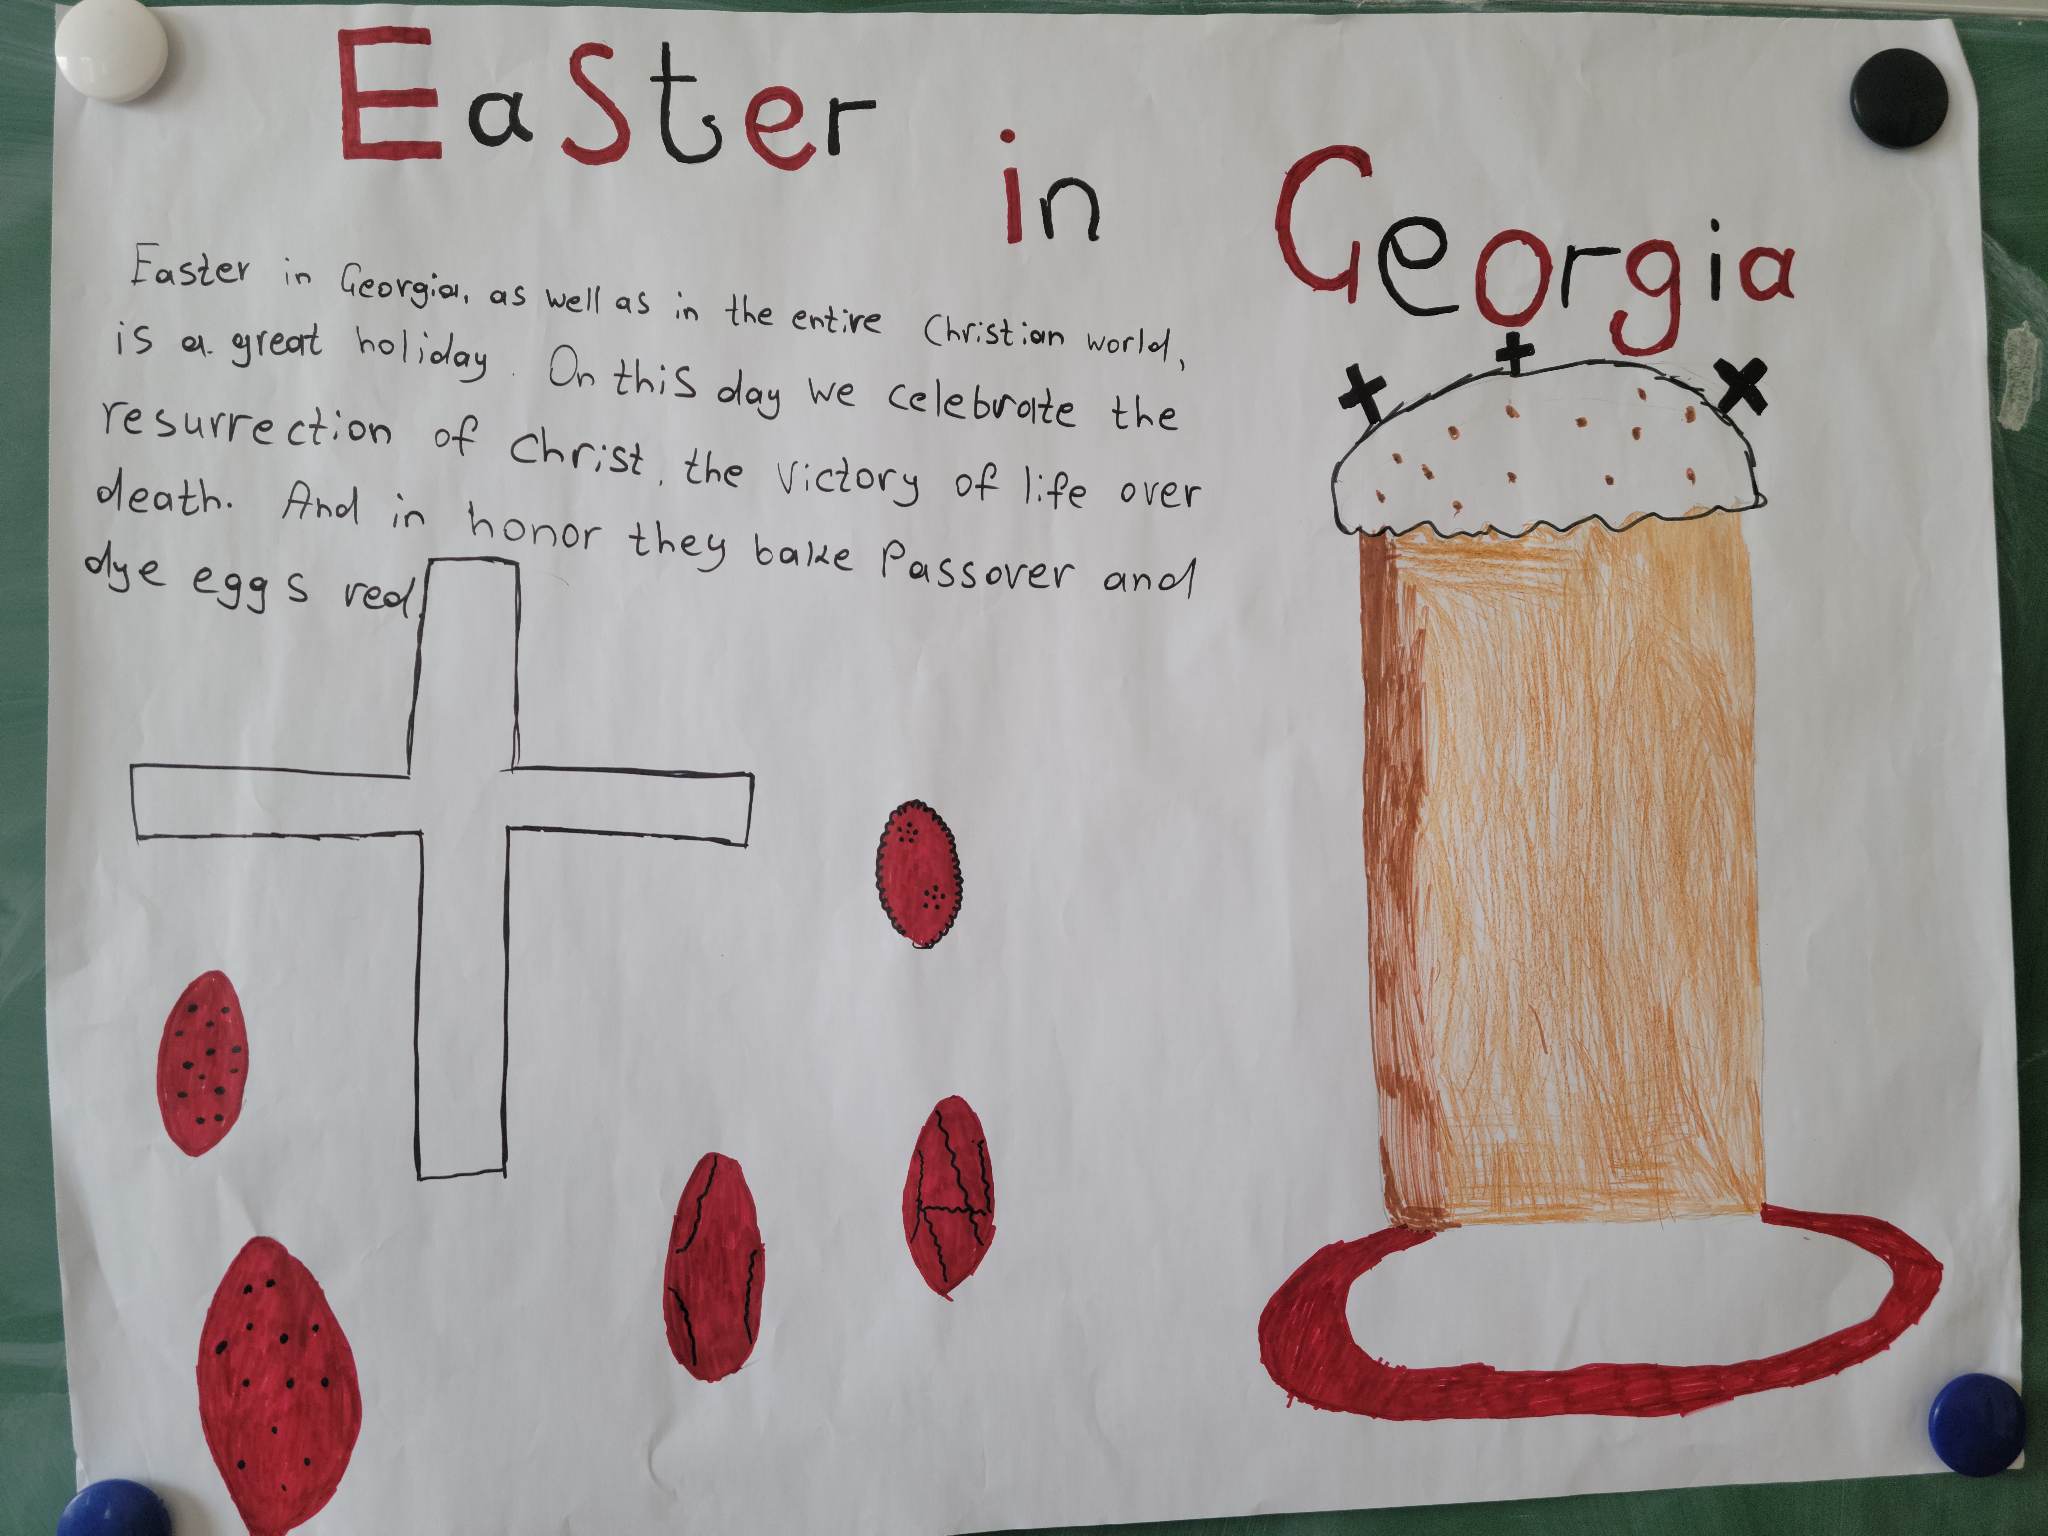 Easter in Georgia
Easter in Georgia, as well as in the entire Christian world,
is a great holiday. On this day we celebrate the
resurrection of Christ, the victory of life over
death. And in honor they bake Passover and
dye eggs red.